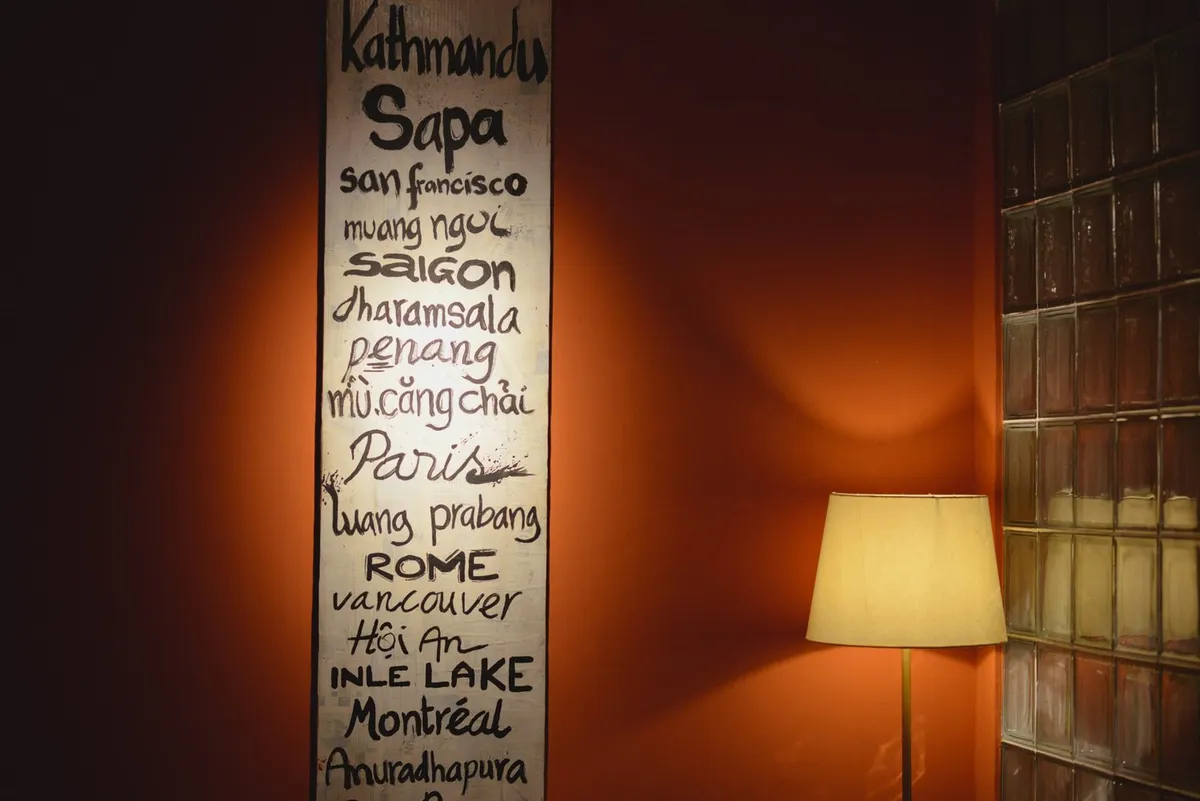 Kathmandu
Sapa
san francisco
muang ngoi
SAIGON
dharamsala
penang
mù.căng chải
Paris
luang prabang
ROME
vancouver
Hội An
INLE LAKE
Montréal
Anuradhapura